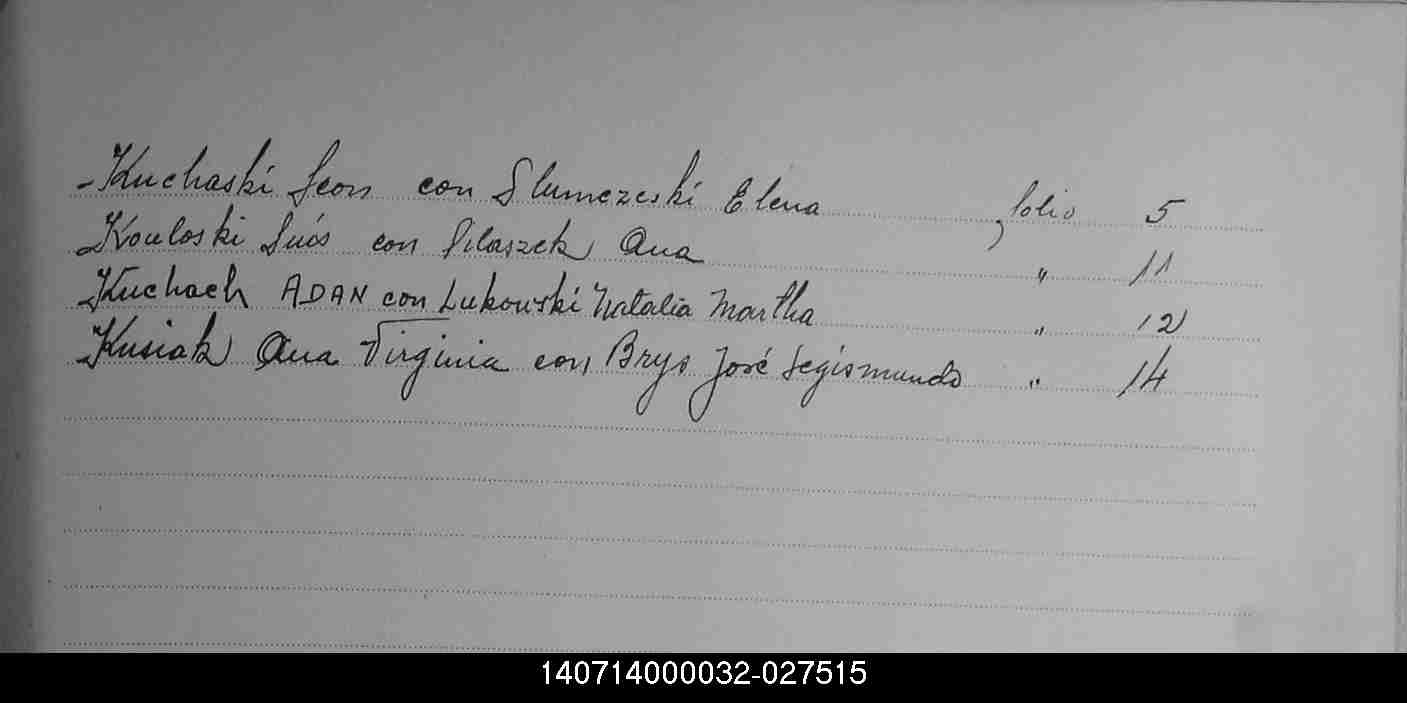 -Kuchaski Leon con Slumczeski Elena folio 5
Kouloski Luis con Pilaszek Ana " 11
Kuchach ADAN con Lukowski Natalia Martha " 12
Kusiak Ana Virginia con Brys José Segismundo " 14
140714000032-027515